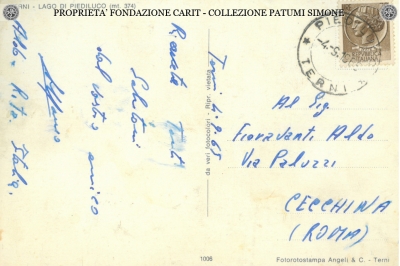 PROPRIETA' FONDAZIONE CARIT - COLLEZIONE PATUMI SIMONE
TERNI - LAGO DI PIEDILUCO (mt. 374)
Terni 4.9.65
Ricevete Tanti
Saluti
dal vostro amico
Alfonso
Aldo Rita Italo.
da veri fotocolori - Ripr. vietata
TERNI
Al Sig
Fioravanti Aldo
Via Paluzzi
CECCHINA
(ROMA)
1006
Fotorotostampa Angeli & C. - Terni